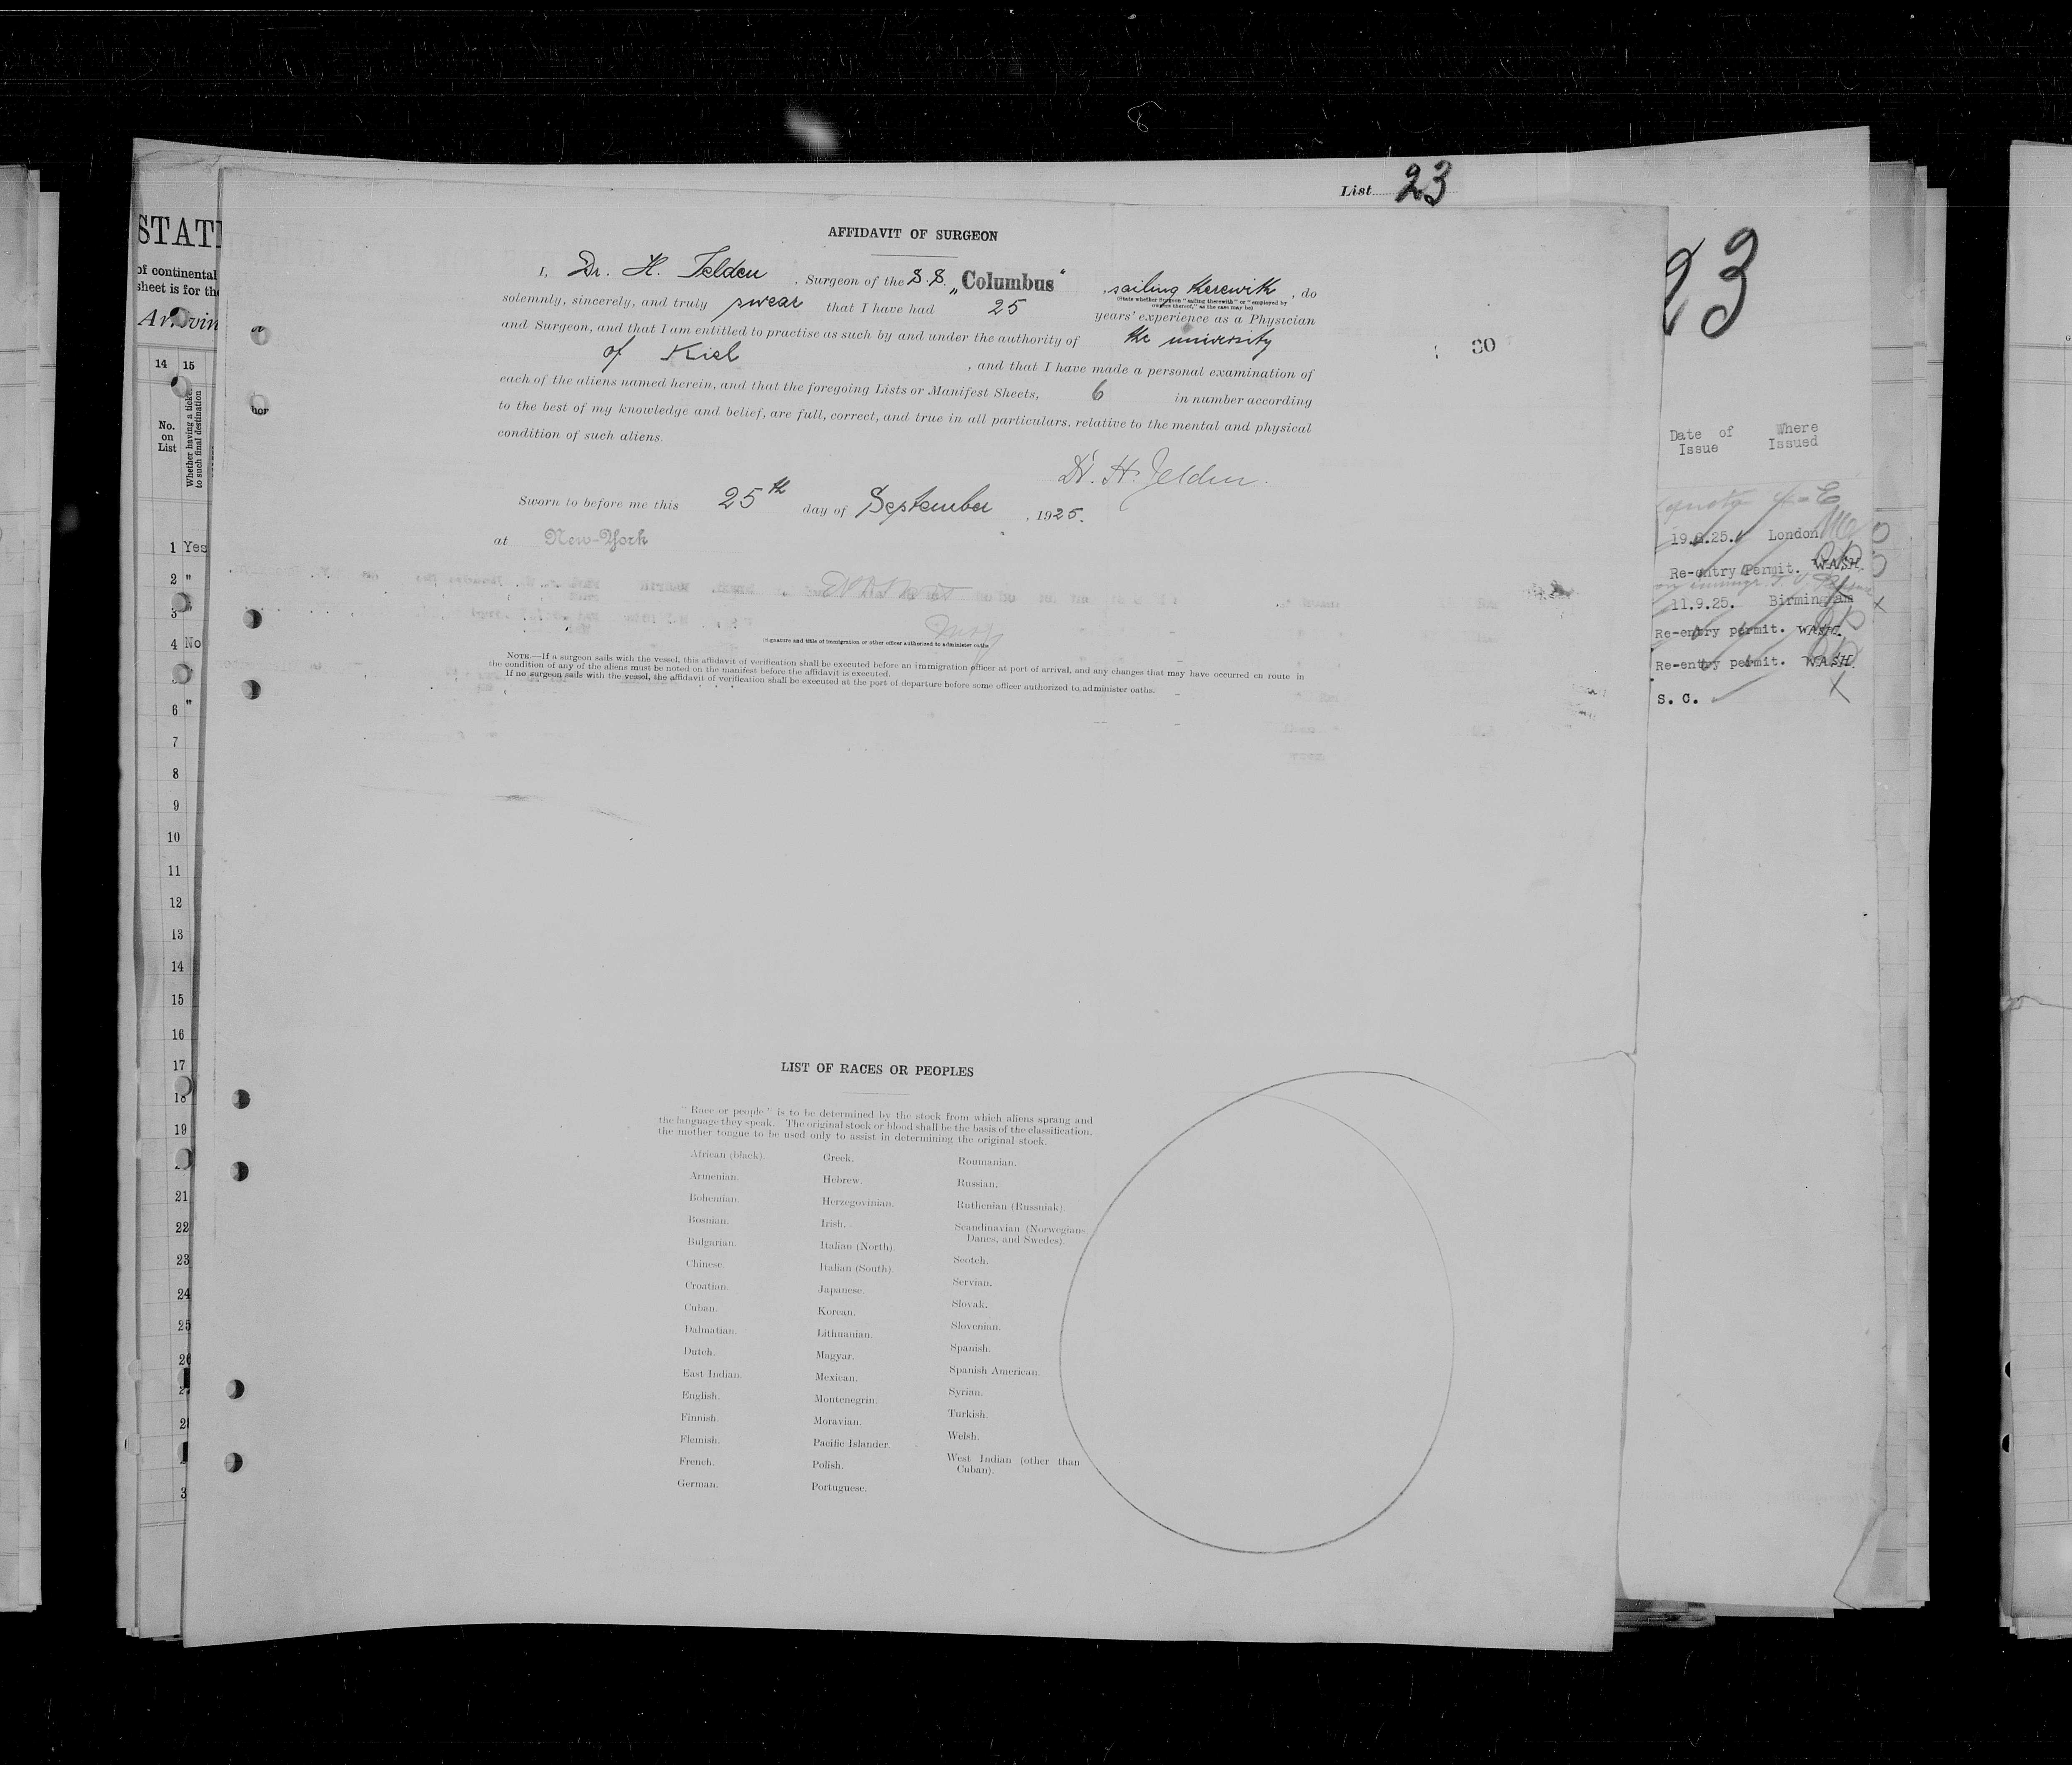 List 23
AFFIDAVIT OF SURGEON
I, Dr. H. Jelden, Surgeon of the S.S. „Columbus" sailing therewith, do
(State whether Surgeon "sailing therewith" or "employed by
owners thereof," as the case may be)
solemnly, sincerely, and truly swear that I have had 25 years' experience as a Physician
and Surgeon, and that I am entitled to practise as such by and under the authority of the university
of Kiel, and that I have made a personal examination of
each of the aliens named herein, and that the foregoing Lists or Manifest Sheets, 6 in number according
to the best of my knowledge and belief, are full, correct, and true in all particulars, relative to the mental and physical
condition of such aliens.
Dr. H. Jelden.
Sworn to before me this 25th day of September, 1925.
at New-York
(Signature and title of immigration or other officer authorized to administer oaths
NOTE.—If a surgeon sails with the vessel, this affidavit of verification shall be executed before an immigration officer at port of arrival, and any changes that may have occurred en route in
the condition of any of the aliens must be noted on the manifest before the affidavit is executed.
If no surgeon sails with the vessel, the affidavit of verification shall be executed at the port of departure before some officer authorized to administer oaths.
LIST OF RACES OR PEOPLES
"Race or people" is to be determined by the stock from which aliens sprang and
the language they speak. The original stock or blood shall be the basis of the classification,
the mother tongue to be used only to assist in determining the original stock.
African (black).
Armenian.
Bohemian.
Bosnian.
Bulgarian.
Chinese.
Croatian.
Cuban.
Dalmatian.
Dutch.
East Indian.
English.
Finnish.
Flemish.
French.
German.
Greek.
Hebrew.
Herzegovinian.
Irish.
Italian (North).
Italian (South).
Japanese.
Korean.
Lithuanian.
Magyar.
Mexican.
Montenegrin.
Moravian.
Pacific Islander.
Polish.
Portuguese.
Roumanian.
Russian.
Ruthenian (Russniak).
Scandinavian (Norwegians,
Danes, and Swedes).
Scotch.
Servian.
Slovak.
Slovenian.
Spanish.
Spanish American.
Syrian.
Turkish.
Welsh.
West Indian (other than
Cuban).
STAT
of continental
sheet is for the
14 15
No.
on
List
Whether having a ticket
to such final destination
1 Yes
2 "
3 "
4 No
6 "
7
8
9
10
11
12
13
14
15
16
17
18
19
21
22
23
24
25
26
23
30
Date of Issue
Where Issued
London
Re-entry Permit. WASH.
11.9.25. Birmingham
Re-entry permit. WASH.
Re-entry permit. WASH.
S. C.